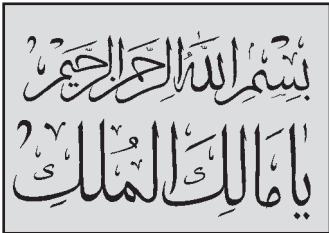 بِسْمِ اللّٰهِ الرَّحْمٰنِ الرَّحِيْمِ
يَا مَالِكَ الْمُلْكِ